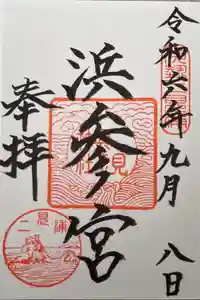 令和六年九月八日
浜参宮
奉拝
二見浦